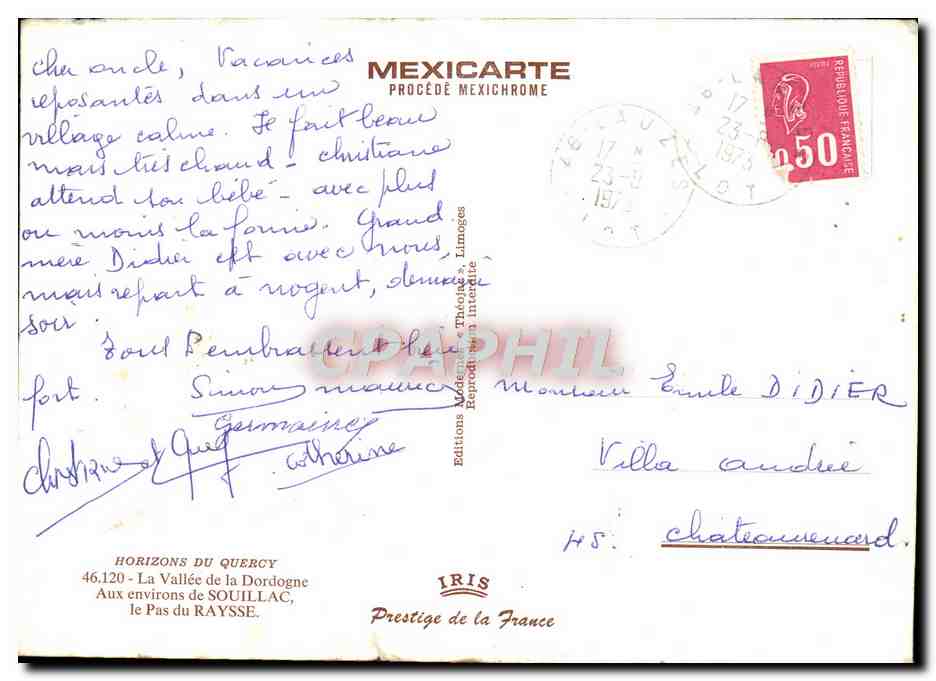 cher oncle, Vacances
reposantes dans un
village calme. Il fait beau
mais très chaud - christiane
attend son bébé - avec plus
ou moins la forme. Grand
mère Didier est avec nous,
mais repart à nogent, demain
soir.
Tous t'embrassent bien
fort.
Simone maurice
Germaine
Christiane et Guy
Catherine
HORIZONS DU QUERCY
46.120 - La Vallée de la Dordogne
Aux environs de SOUILLAC,
le Pas du RAYSSE.
MEXICARTE
PROCÉDÉ MEXICHROME
Editions Modernes « Théojac », Limoges
Reproduction interdite
IRIS
Prestige de la France
CPAPHIL
46 LAUZES
17 H
23-8
1973
LOT
17
23-8
1973
LOT
REPUBLIQUE FRANCAISE
0,50
Monsieur Emile DIDIER
Villa andrée
45. chateaurenard.